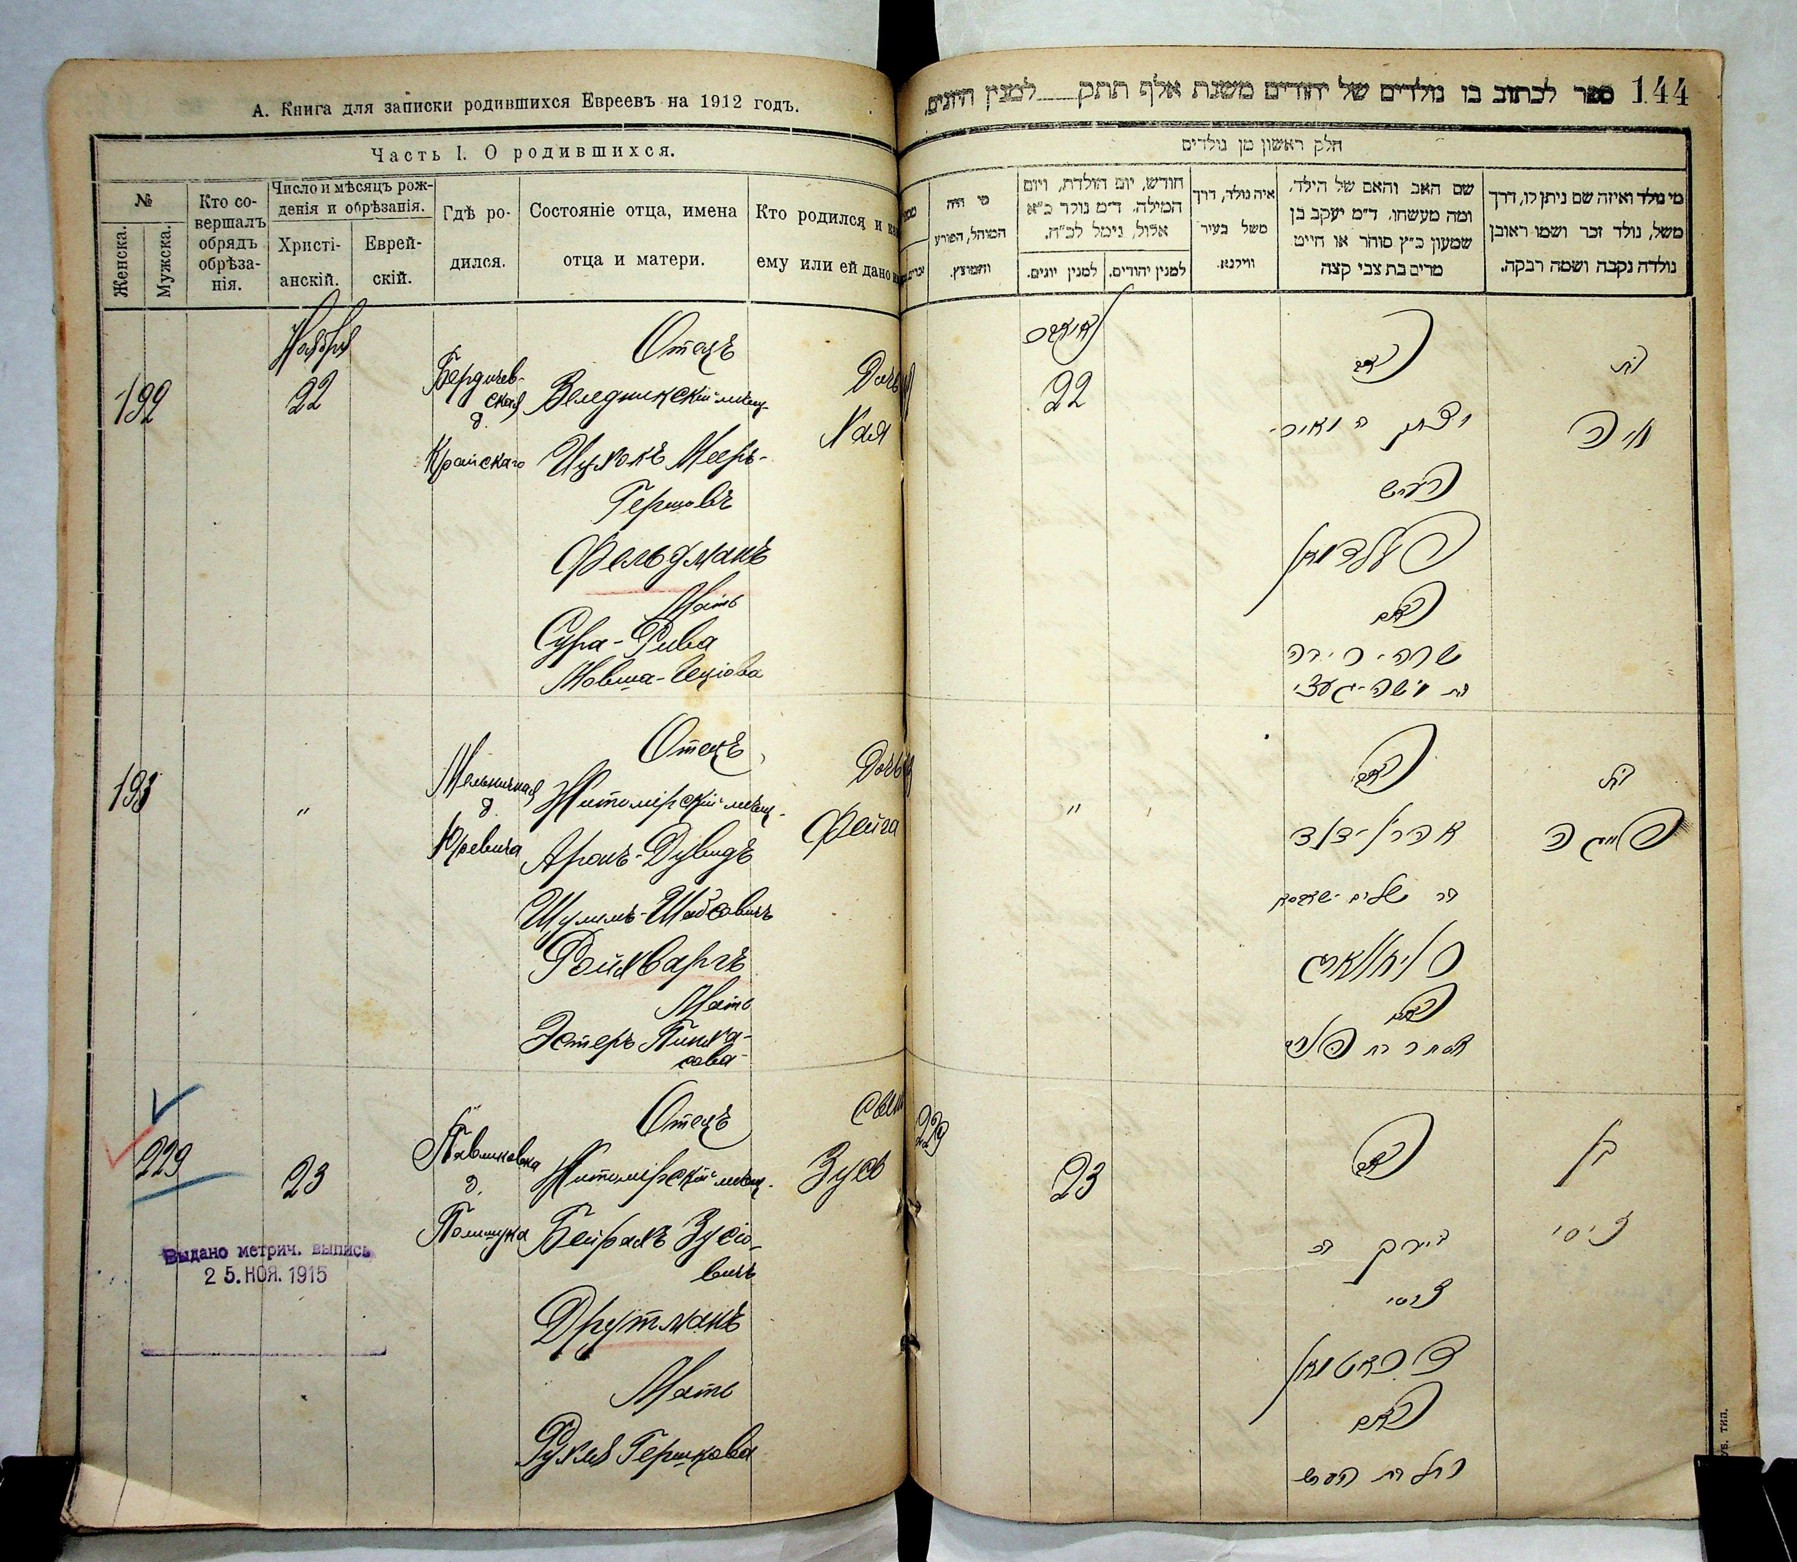 А. Книга для записки родившихся Евреевъ на 1912 годъ.
Часть I. О родившихся.
№
Женска.
Мужска.
Кто со-
вершалъ
обрядъ
обрѣза-
нія.
Число и мѣсяцъ рож-
денія и обрѣзанія.
Христі-
анскій.
Еврей-
скій.
Гдѣ ро-
дился.
Состояніе отца, имена
отца и матери.
Кто родился и
ему или ей дано
192
Ноября
22
Бердичев-
ская
д.
Крайскаго
Отецъ
Веледникскій мѣщ.
Ицхокъ Мееръ-
Гершовъ
Фельдманъ
Мать
Сура-Рива
Мовша-Геціова
Дочь
Хая
193
"
Мельничная
д.
Юревича
Отецъ
Житомірскій мѣщ.
Аронъ-Дувидъ
Шулимъ-Шабсовичъ
Ройхваргъ
Мать
Эстеръ Пинха-
сова
Дочь
Фейга
229
23
Павликовка
д.
Полищука
Отецъ
Житомірскій мѣщ.
Бейрахъ Зусіо-
вичъ
Друтманъ
Мать
Рухля Гершкова
сынъ
Зусь
Выдано метрич. выпись
25. НОЯ. 1915
144
ספר לכתוב בו נולדים של יהודים משנת אלף תתק למנין היונים.
חלק ראשון מן נולדים
מי נולד ואיזה שם ניתן לו, דרך
משל, נולד זכר ושמו ראובן
נולדה נקבה ושמה רבקה.
שם האב והאם של הילד,
ומה מעשהו. ד״מ יעקב בן
שמעון כ״ץ סוחר או חייט
מרים בת צבי קצה
איה נולד, דרך
משל בעיר
ווילנא.
חודש, יום הולדת, ויום
המילה. ד״מ נולד כ״א
אלול, נימל לכ״ח.
למנין יהודים.
למנין יונים.
מי היה
המוהל, הפורע
והמוצץ.
22
בת
חיה
האב
יצחק מאיר
הערש
פעלדמאן
האם
שרה-ריבה
בת משה-געצי
"
בת
פייגה
האב
אהרן-דוד
בר שלום-שבסא
רויחווארג
האם
אסתר בת פנחס
229
23
בן
זיסי
האב
בירך בר
זיסי
דרוטמאן
האם
רחל בת הערש